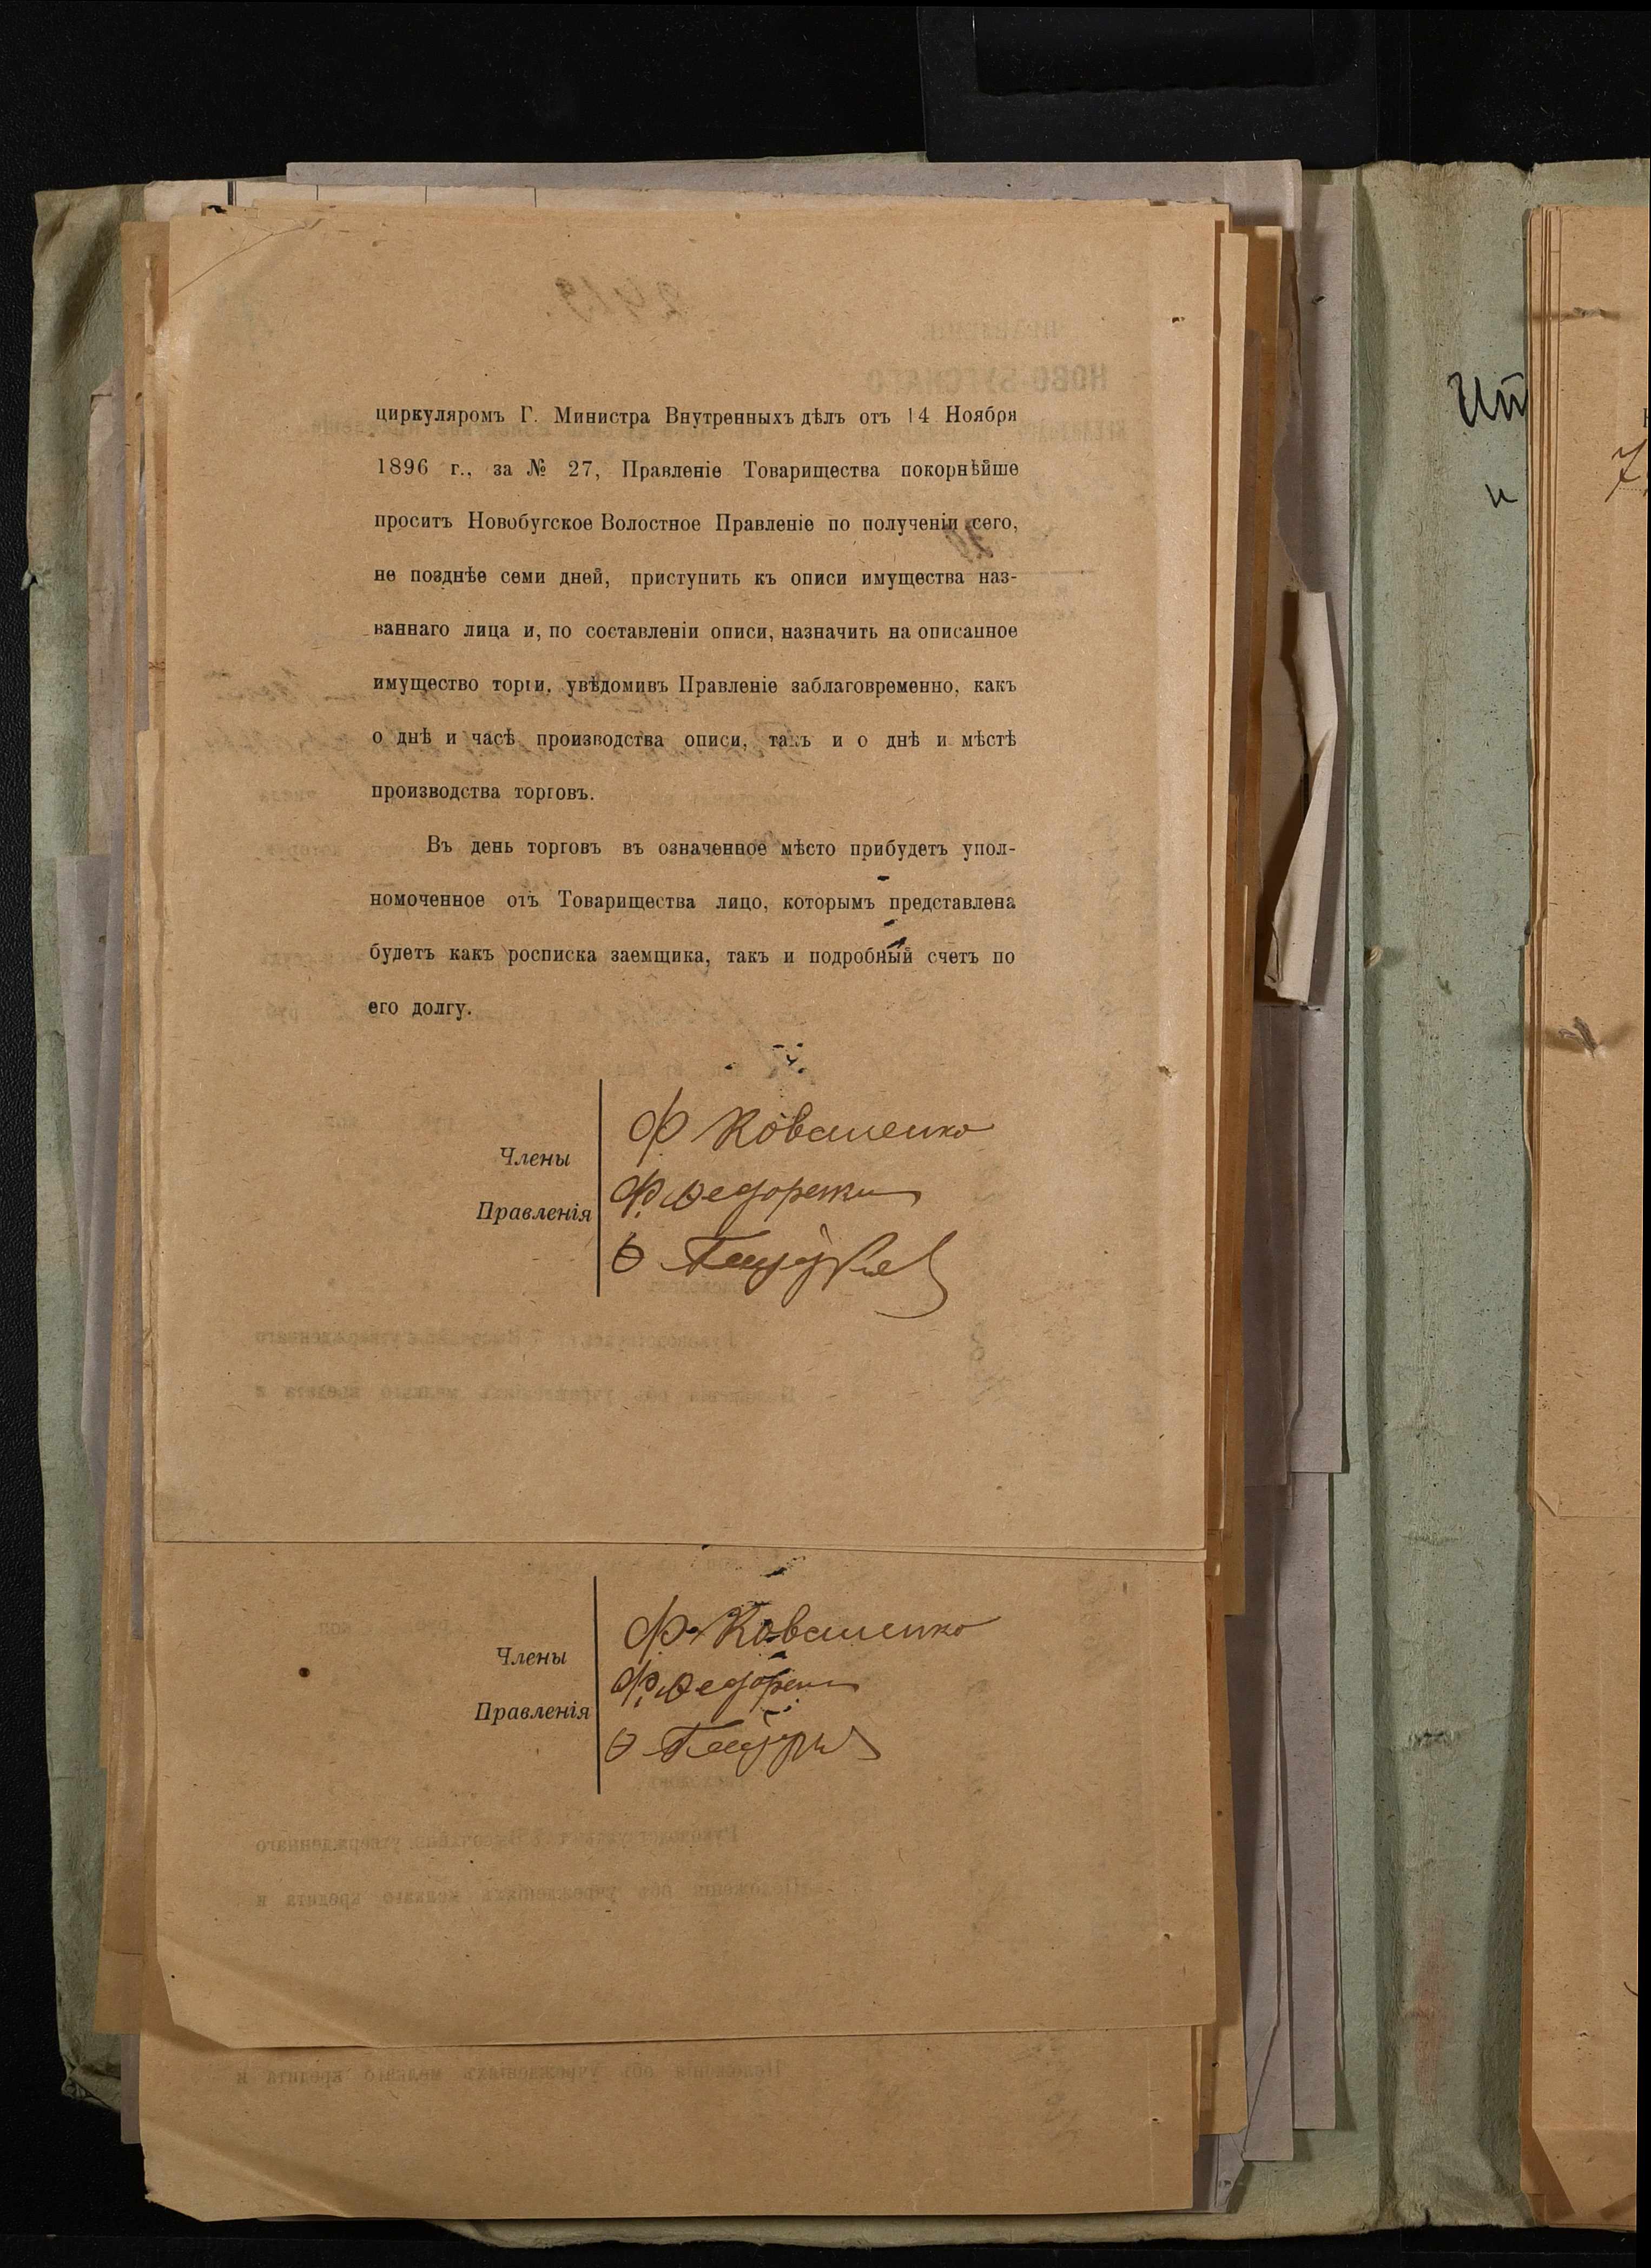 циркуляромъ Г. Министра Внутренныхъ дѣлъ отъ 14 Ноября
1896 г., за № 27, Правленіе Товарищества покорнѣйше
проситъ Новобугское Волостное Правленіе по полученіи сего,
не позднѣе семи дней, приступить къ описи имущества наз-
ваннаго лица и, по составленіи описи, назначить на описанное
имущество торги, увѣдомивъ Правленіе заблаговременно, какъ
о днѣ и часѣ производства описи, такъ и о днѣ и мѣстѣ
производства торговъ.
Въ день торговъ въ означенное мѣсто прибудетъ упол-
номоченное отъ Товарищества лицо, которымъ представлена
будетъ какъ росписка заемщика, такъ и подробный счетъ по
его долгу.
Члены
Правленія
Ф Коваленко
Ф. Федоренко
Члены
Правленія
Ф. Коваленко